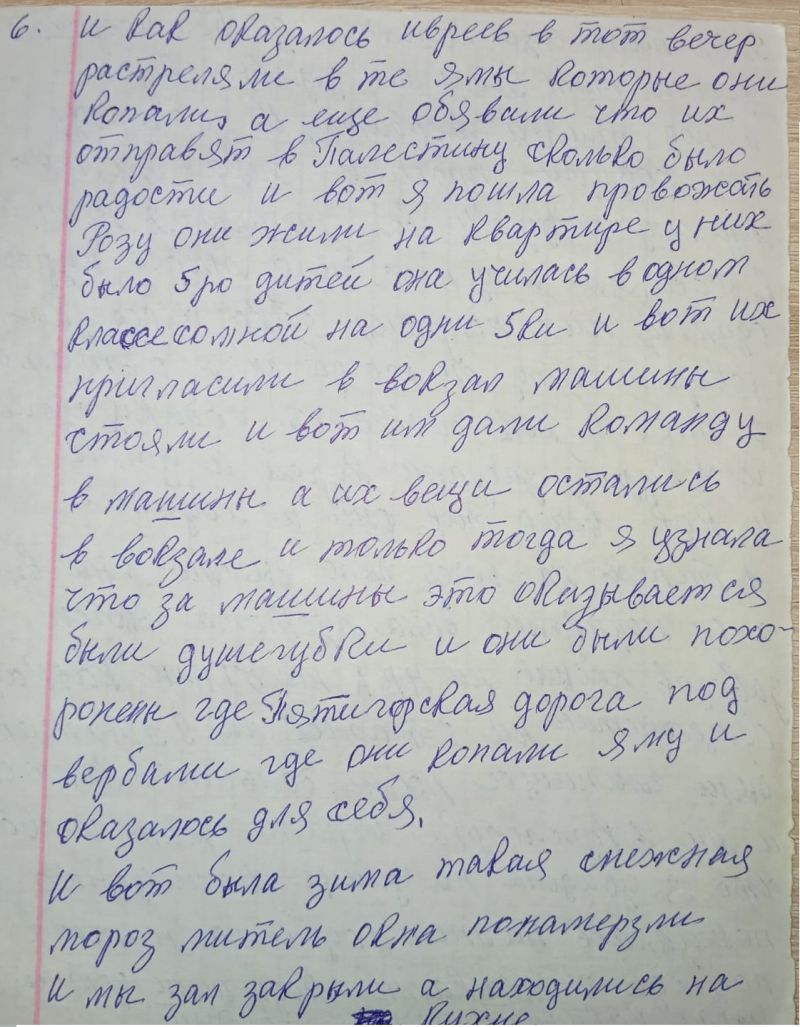 6. и как оказалось ивреев в тот вечер
растреляли в те ямы которые они
копали, а еще обявали что их
отправят в Палестину сколько было
радости и вот я пошла провожать
Розу они жили на квартире у них
было 5ро дитей она училась в одном
классесомной на одни 5ки и вот их
пригласили в вокзал машины
стояли и вот им дали команду
в машины а их вещи остались
в вокзале и только тогда я узнала
что за машины это оказывается
были душегубки и они были похо-
ронены где Пятигорская дорога под
вербами где они копали яму и
оказалось для себя.
И вот была зима такая снежная
мороз митель окна понамерзли
и мы зал закрыли а находились на
кухне